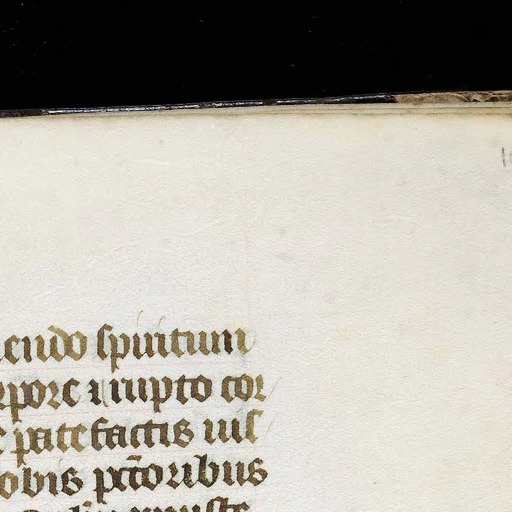 endo spiritum
rpore rupto cor
patefactis uis
obis pctoribus